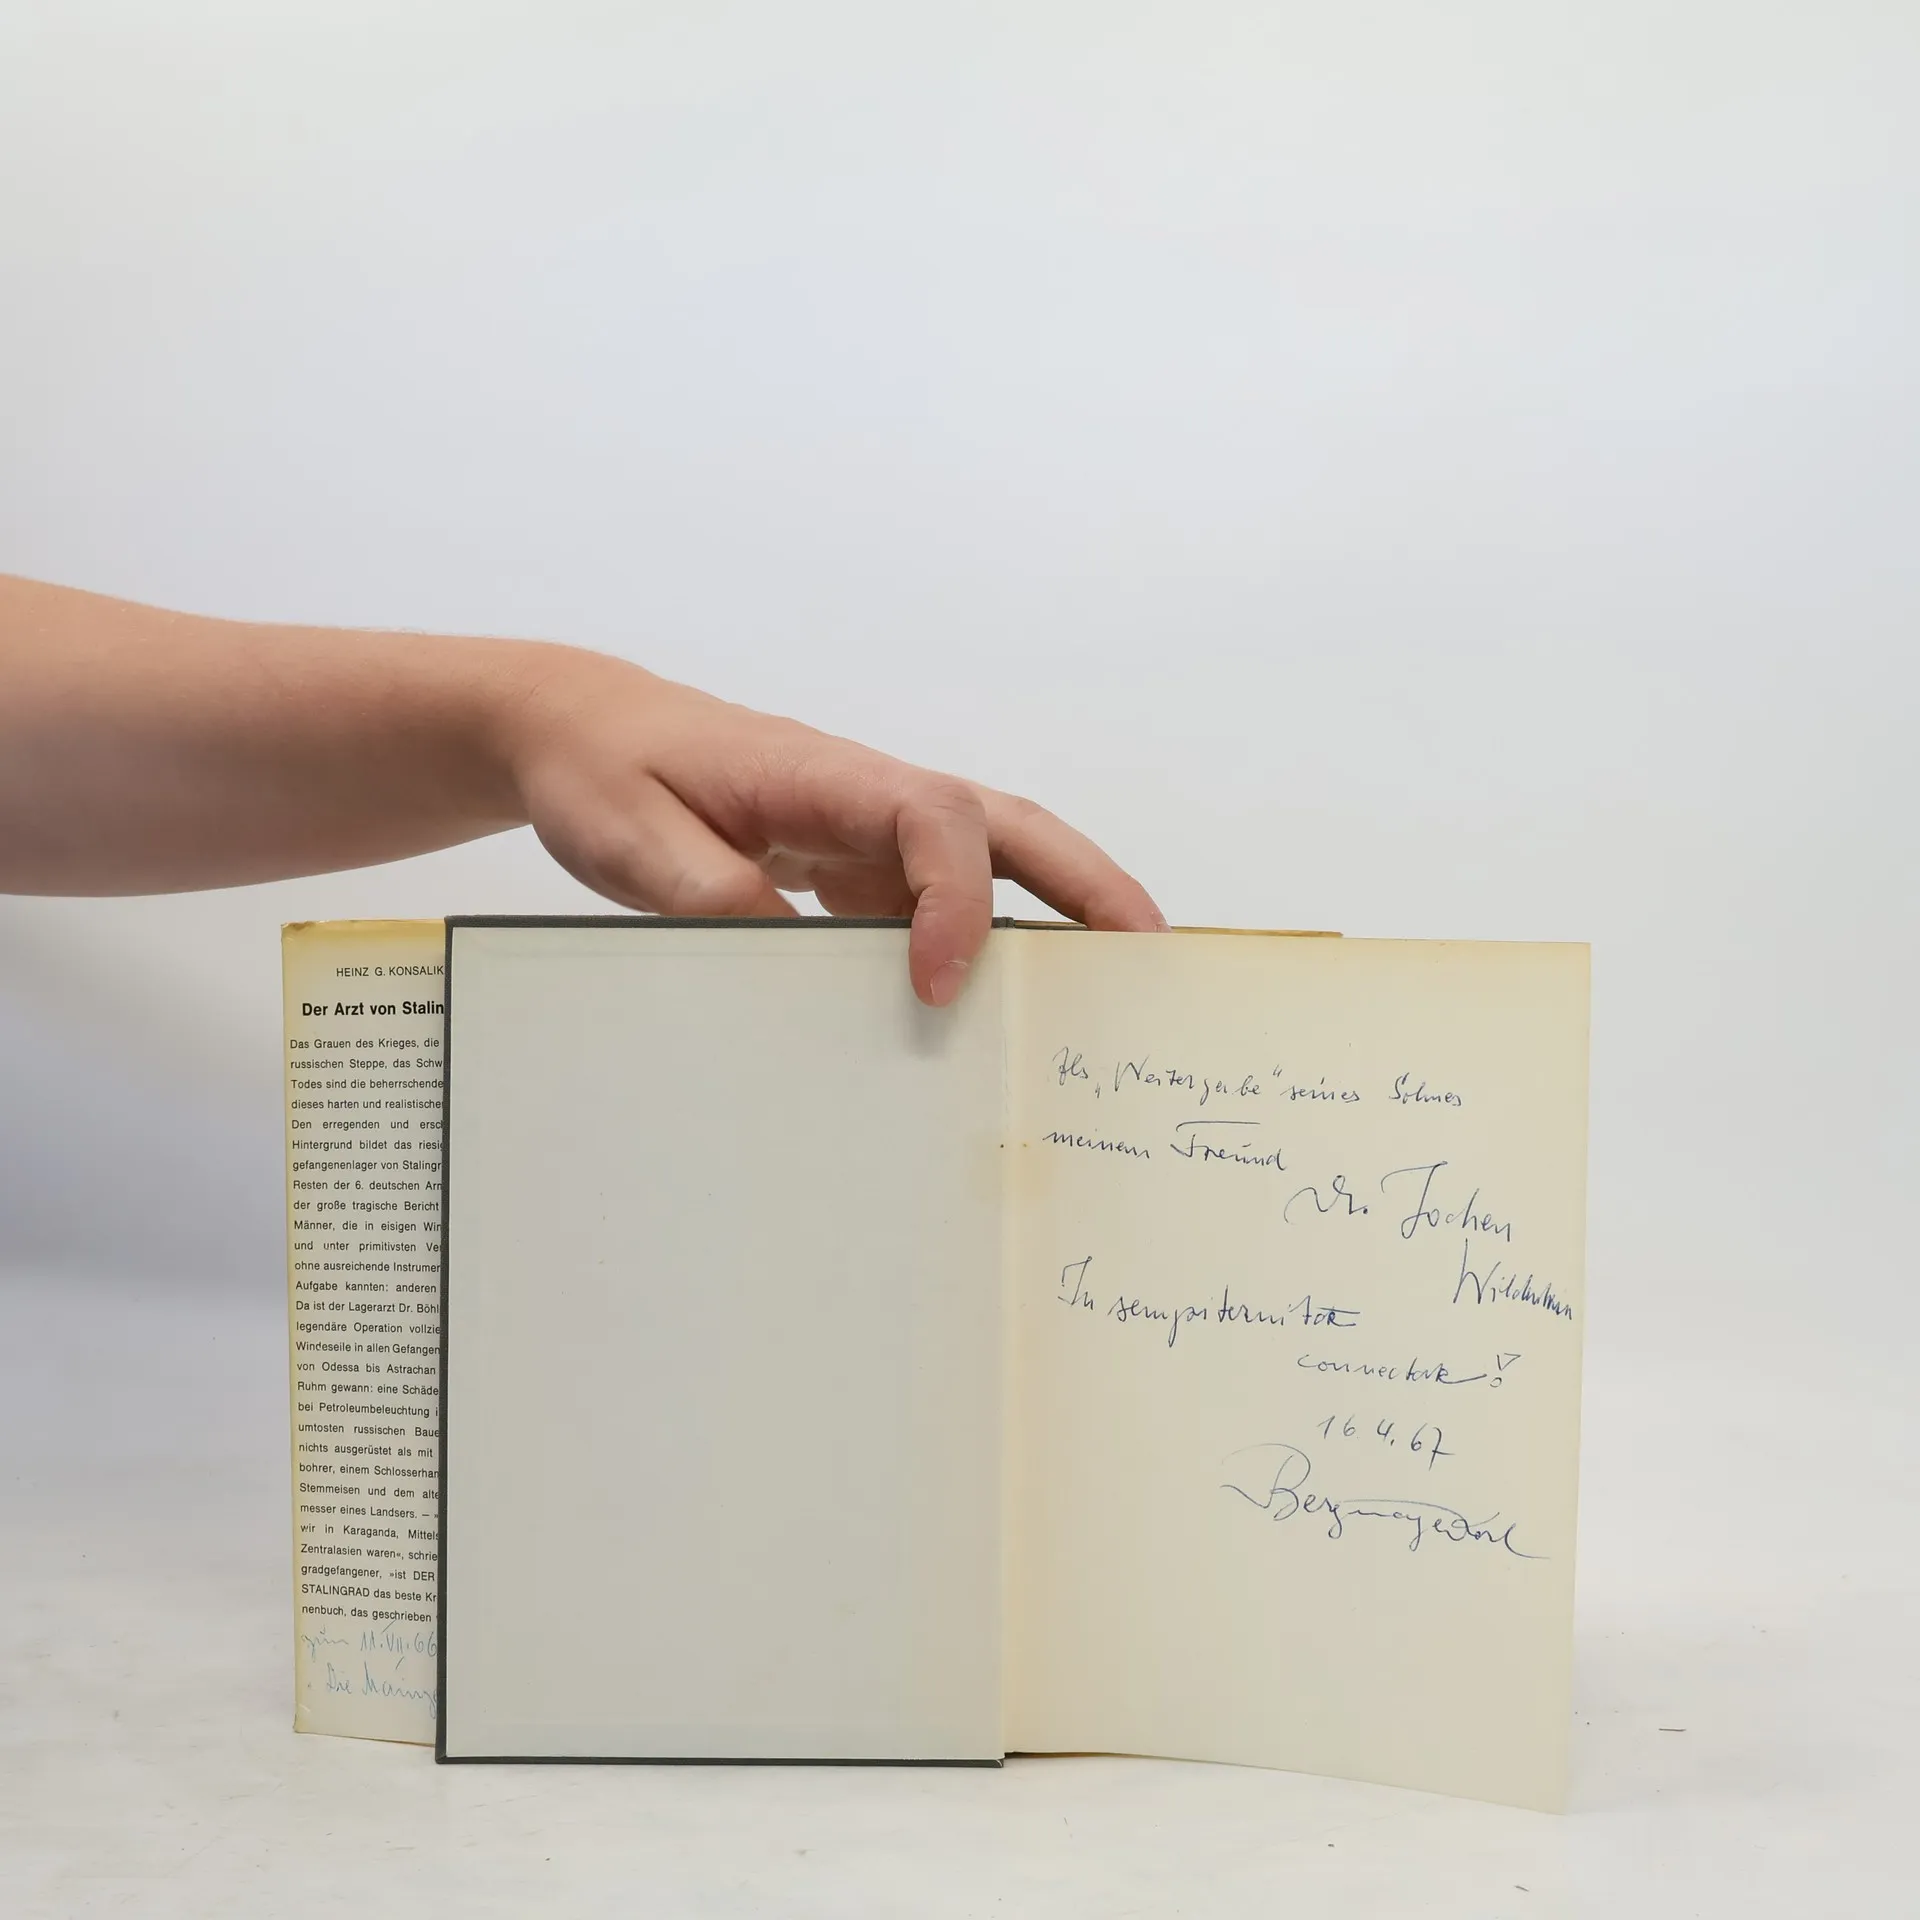 HEINZ G. KONSALIK
Der Arzt von Stalin
Das Grauen des Krieges, die
russischen Steppe, das Schw
Todes sind die beherrschende
dieses harten und realistischer
Den erregenden und ersch
Hintergrund bildet das riesig
gefangenenlager von Stalingr
Resten der 6. deutschen Arm
der große tragische Bericht
Männer, die in eisigen Win
und unter primitivsten Ve
ohne ausreichende Instrumen
Aufgabe kannten: anderen
Da ist der Lagerarzt Dr. Böhl
legendäre Operation vollzie
Windeseile in allen Gefangen
von Odessa bis Astrachan
Ruhm gewann: eine Schäde
bei Petroleumbeleuchtung i
umtosten russischen Baue
nichts ausgerüstet als mit
bohrer, einem Schlosserham
Stemmeisen und dem alte
messer eines Landsers. – »
wir in Karaganda, Mittels
Zentralasien waren«, schrie
gradgefangener, »ist DER
STALINGRAD das beste Kr
nenbuch, das geschrieben
zum 11. VII. 66
Die Mainz
Als „Weitergabe" seines Sohnes
meinem Freund
Dr. Jochen
In sempiternitate
16.4.67